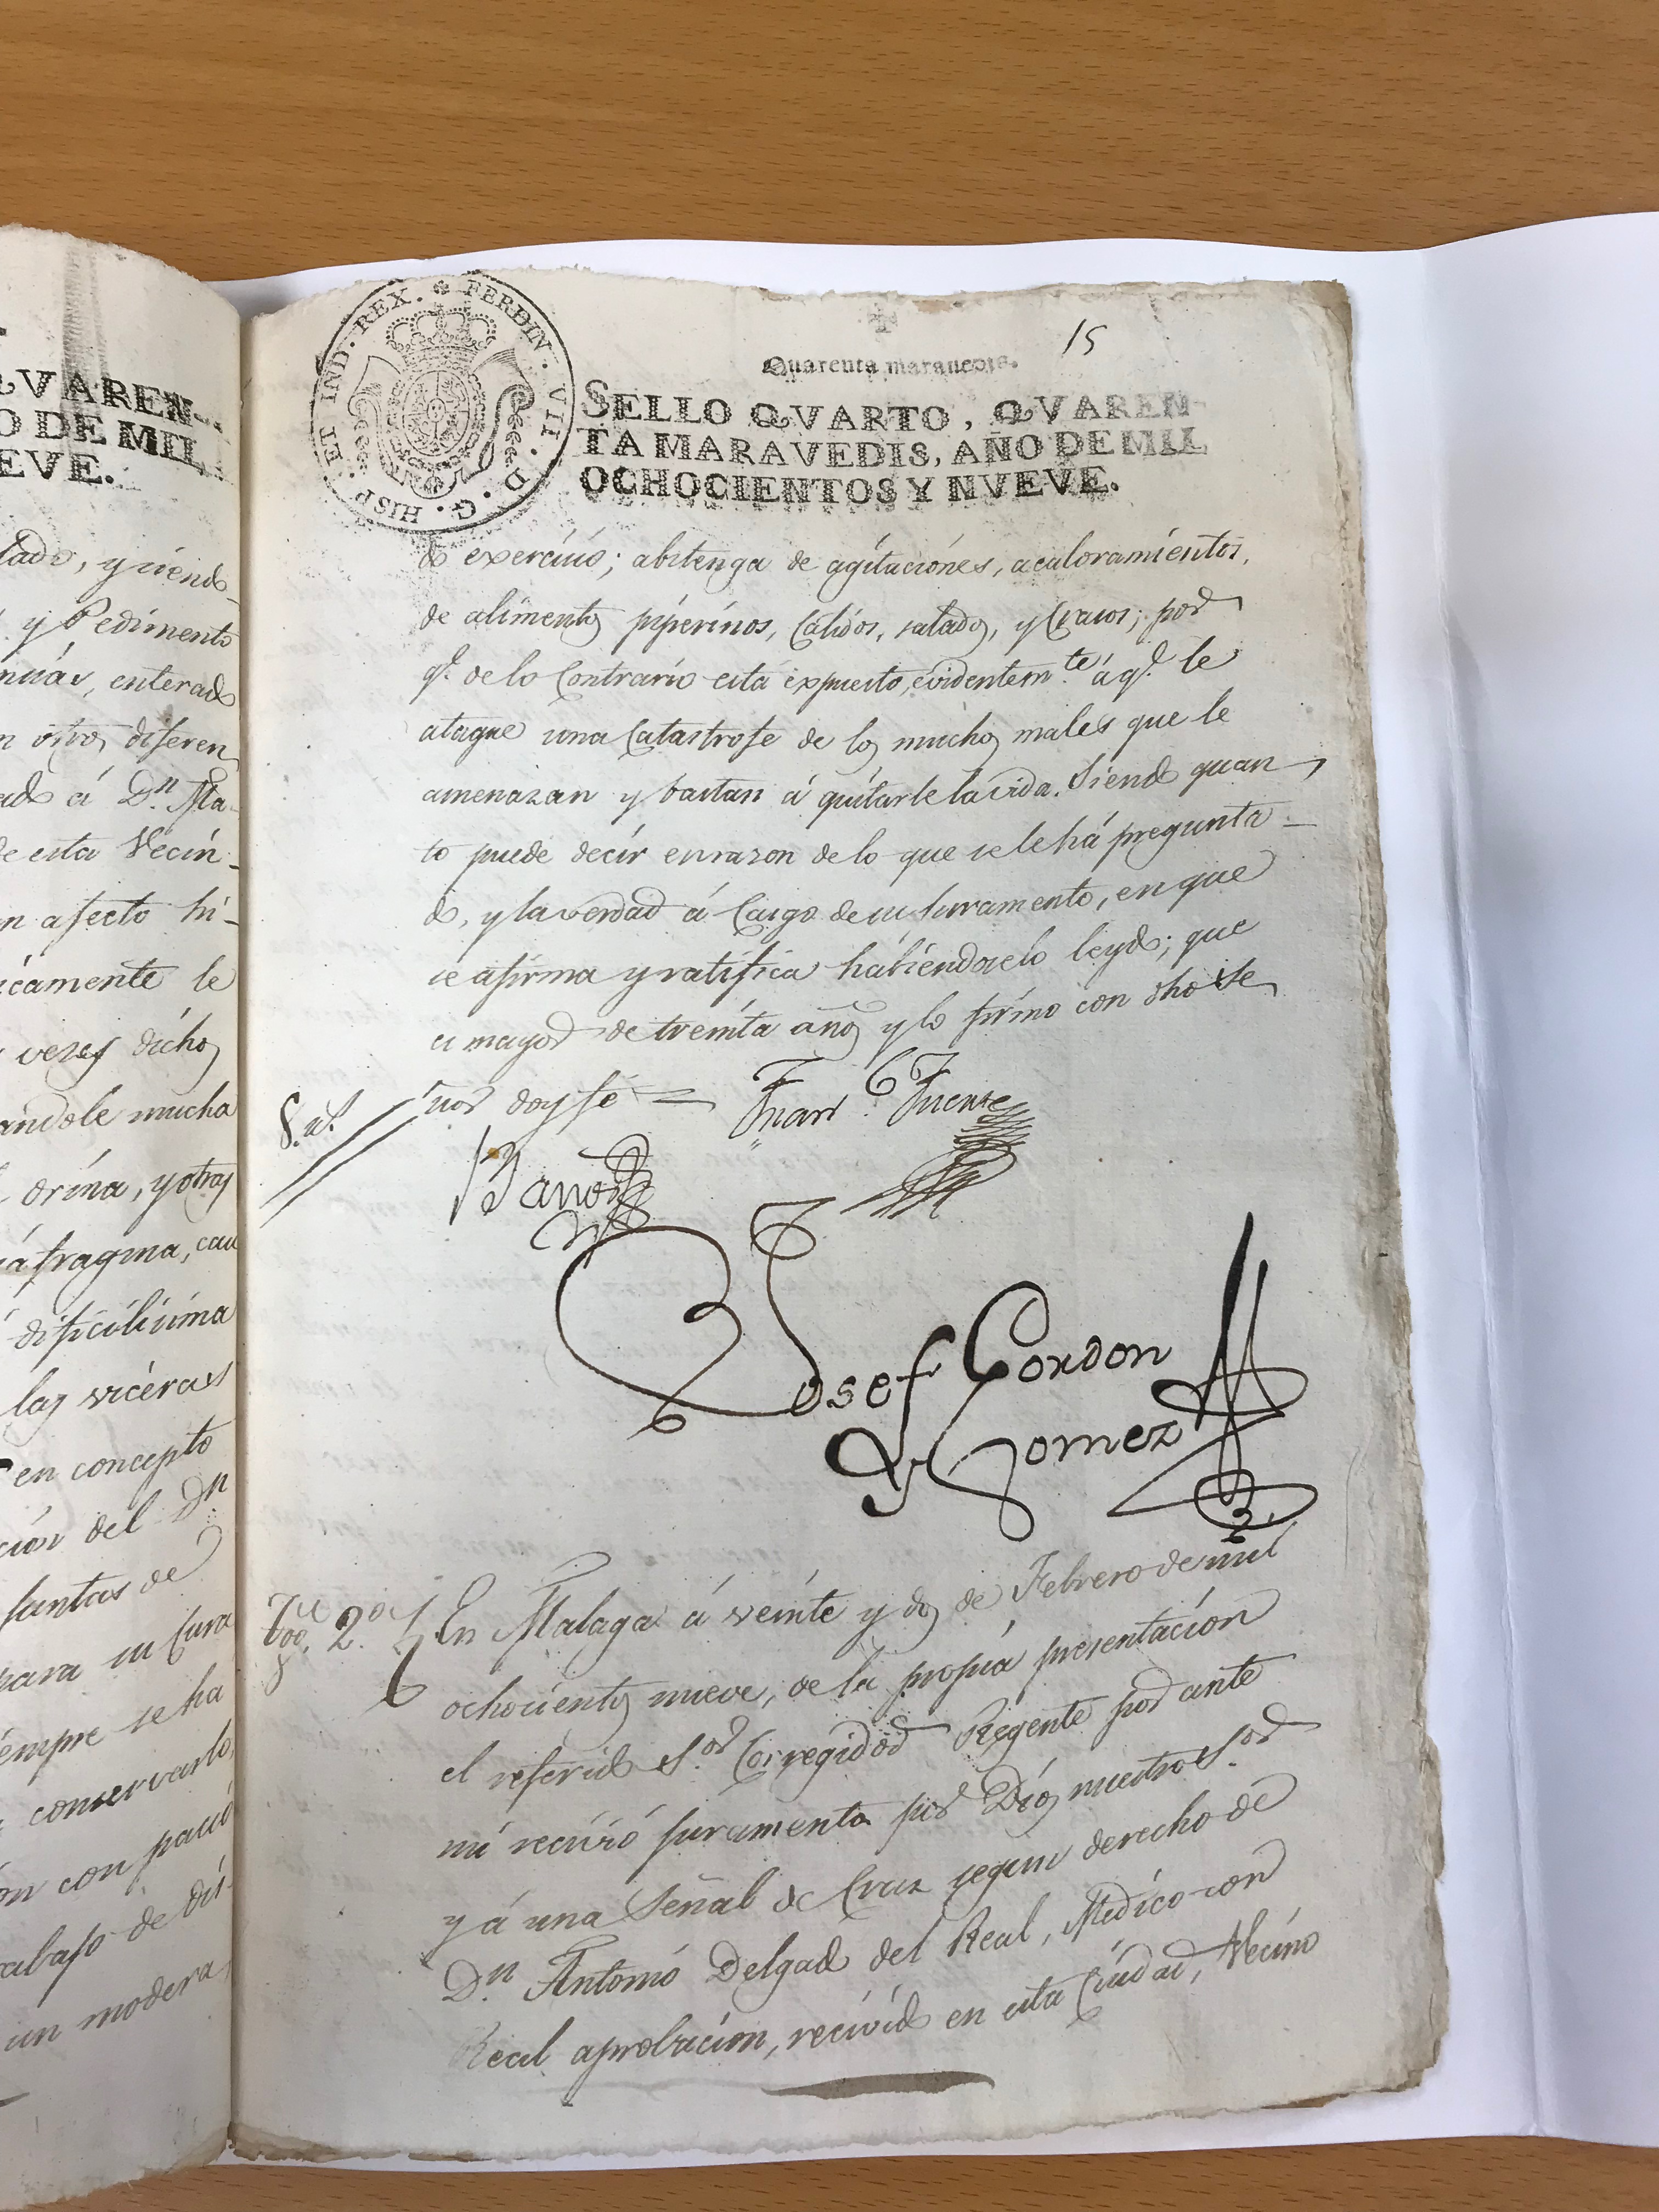 QVAREN-
O DE MIL
EVE.
tado, y siendo
y Pedimento
enterado
diferen
ado á Dn. Ma-
de esta Vecin-
n afecto hi-
icamente le
veses dichos
andole mucha
orina, y otras
iafragma, cau
dificilisima
las viceras
en concepto
cion del Dn.
Juntas de
para su Cura
iempre se ha
conservarlo,
on con paus
abajo de dis-
un modera
FERDIN. VII. D. G. HISP. ET IND. REX.
15
Quarenta marauedis.
SELLO QVARTO, QVAREN-
TA MARAVEDIS, AÑO DE MIL
OCHOCIENTOS Y NVEVE.
do exercicio; abstenga de agitaciones, acaloramientos,
de alimentos piperinos, Calidos, salados, y Crasos; por
qe. de lo Contrario está expuesto, evidentemte. á qe. le
ataque una Catastrofe de los muchos males que le
amenazan y bastan á quitarle la vida. Siendo quan
to puede decir en razon de lo que se le há pregunta-
do, y la verdad á Cargo de su Juramento, en que
se afirma y ratifica habiendoselo leydo; que
es mayor de treinta años y lo firmo con dho Se
ñor doy fe =
Fuente
Josef Cordon
y Gomez
Tgo. 2o. En Malaga á veinte y dos de Febrero de mil
ochocientos nueve, de la propia presentacion
el referido Sor. Corregidor Regente por ante
mi recivió juramento por Dios nuestro Sor.
y á una Señal de Cruz segun derecho de
Dn. Antonio Delgado del Real, Medico con
Real aprobacion, recivido en esta Ciudad, Vecino